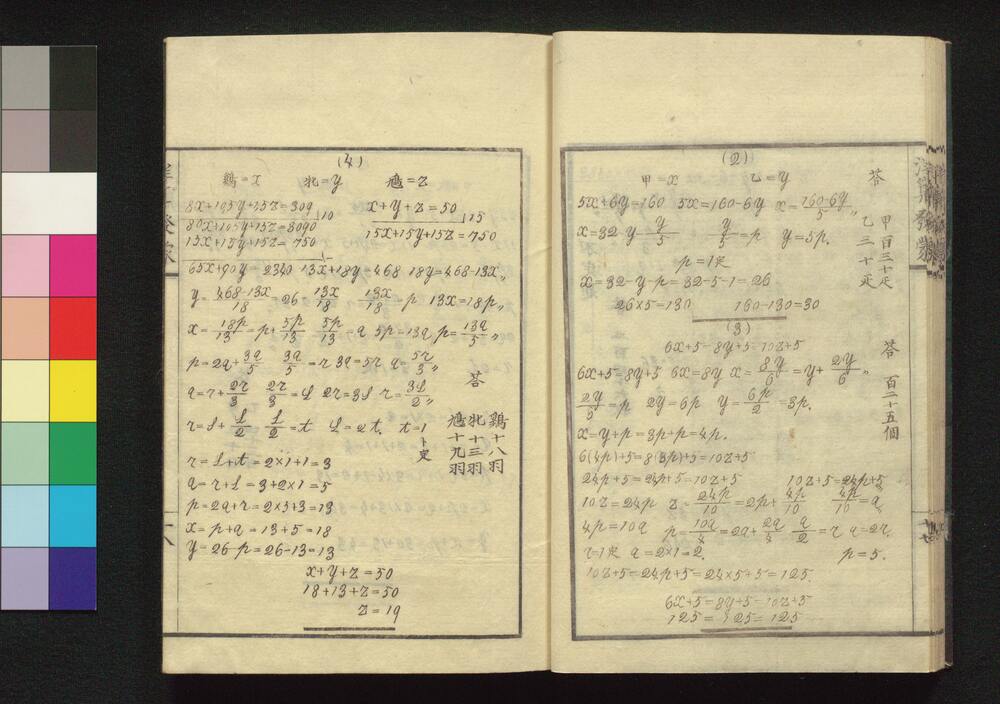 (2)
甲=x 乙=y
5x+6y=160 5x=160-6y x=160-6y/5
x=32-y-y/5 y/5=p y=5p.
p=1定
x=32-y-p=32-5-1=26
26×5=130 160-130=30
答
甲百三十疋
乙三十疋
(3)
6x+5=8y+5=10z+5
6x+5=8y+5 6x=8y x=8y/6=y+2y/6
2y=6p y=6p/2=3p.
x=y+p=3p+p=4p.
6(4p)+5=8(3p)+5=10z+5
24p+5=24p+5=10z+5 10z+5=24p+5
10z=24p z=24p/10=2p+4p/10 4p/10=q
4p=10q p=10q/4=2q+2q/4 q/2=r q=2r.
r=1定 q=2×1=2. p=5.
10z+5=24p+5=24×5+5=125.
6x+5=8y+5=10z+5
125=125=125
答 百二十五個
(4)
鷄=x 牝=y z
8x+ z=309 10
x+y+z=50 15
15x+15y+15z=750
15x+15y+15z=750
65x+90y=2340 13x+18y=468 18y=468-13x
y=468-13x/18=26-13x/18 13x/18=p 13x=18p
x=18p/13=p+5p/13 5p/13=q 5p=13q p=13q/5
p=2q+3q/5 3q/5=r 3q=5r q=5r/3
q=r+2r/3 2r/3=s 2r=3s r=3s/2
r=s+s/2 s/2=t s=2t. t=1ト定
r=s+t=2×1+1=3
q=r+s=3+2×1=5
p=2q+r=2×5+3=13
x=p+q=13+5=18
y=26-p=26-13=13
x+y+z=50
18+13+z=50
z=19
答
鷄十八羽
牝十三羽
十九羽